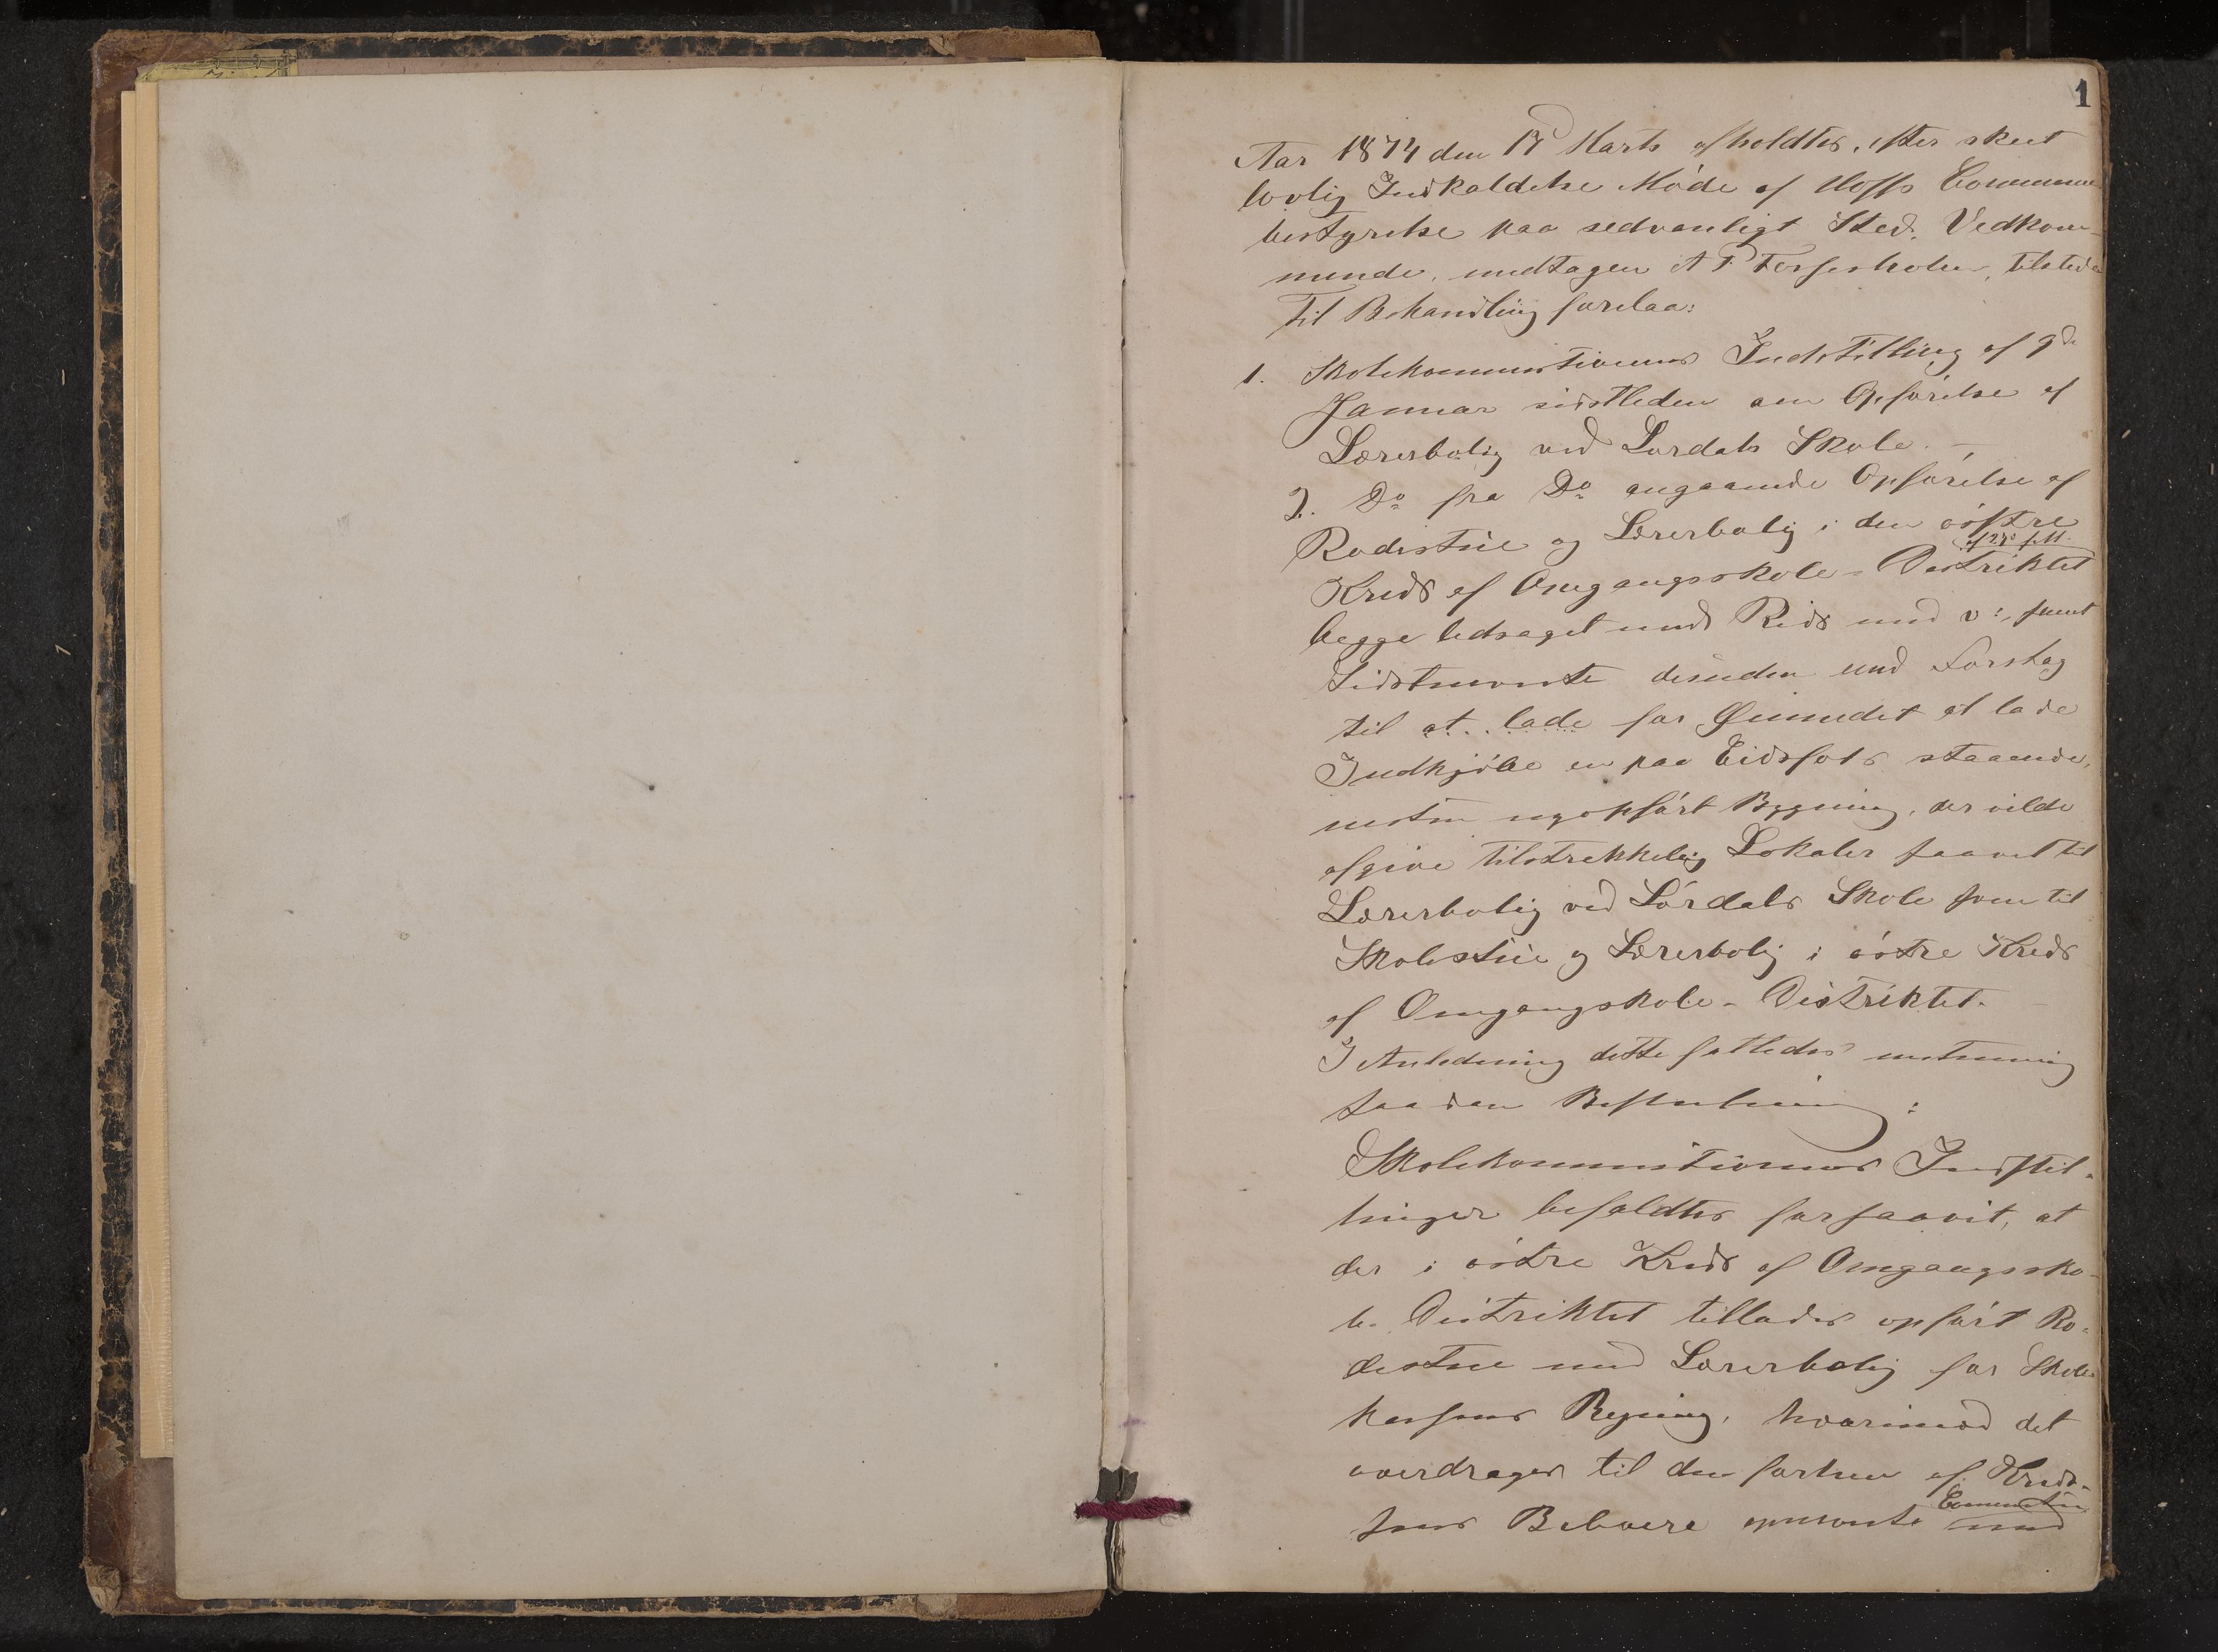 1
Aar 1874 den 17 Marts afholdtes, efter skeet
lovlig Indkaldelse Møde af Hoffs Commune
bestyrelse paa sedvanligt Sted. Vedkom-
mende, undtagen A T tilstede
Til Behandling forelaa:
1. Skolekommistionens Indstilling af 9de
Januar sidstleden om Opførelse af
Lærerbolig ved Lørdals Skole. —
2. Do fra Do angaaende Opførelse af
Rodestue og Lærerbolig i den østre
Kreds af Omgangsskole-Distriktet
begge ledsaget med Rids med v:, samt
Sidstnevnte desuden med Forslag
til at lade for Øiemedet at lade
Indkjøbe en paa Eidsfos staaende,
nesten nyopført Bygning, der vilde
afgive tilstrekkelig Lokaler saavel til
Lærerbolig ved Lørdals Skole som til
Skolestue og Lærerbolig i østre Kreds
af Omgangskole-Distriktet.
I Anledning dette fattedes enstemmig
saadan Beslutning:
Skolekommistionens Indstil-
linger befaldtes forsaavit, at
der i østre Kreds af Omgangssko-
le-Distriktet tillades opført Ro-
destue med Lærerbolig for Skole-
kassens Regning, hvorimod det
overdrages til den forhen af Kred-
sens Beboere opnevnte Committe